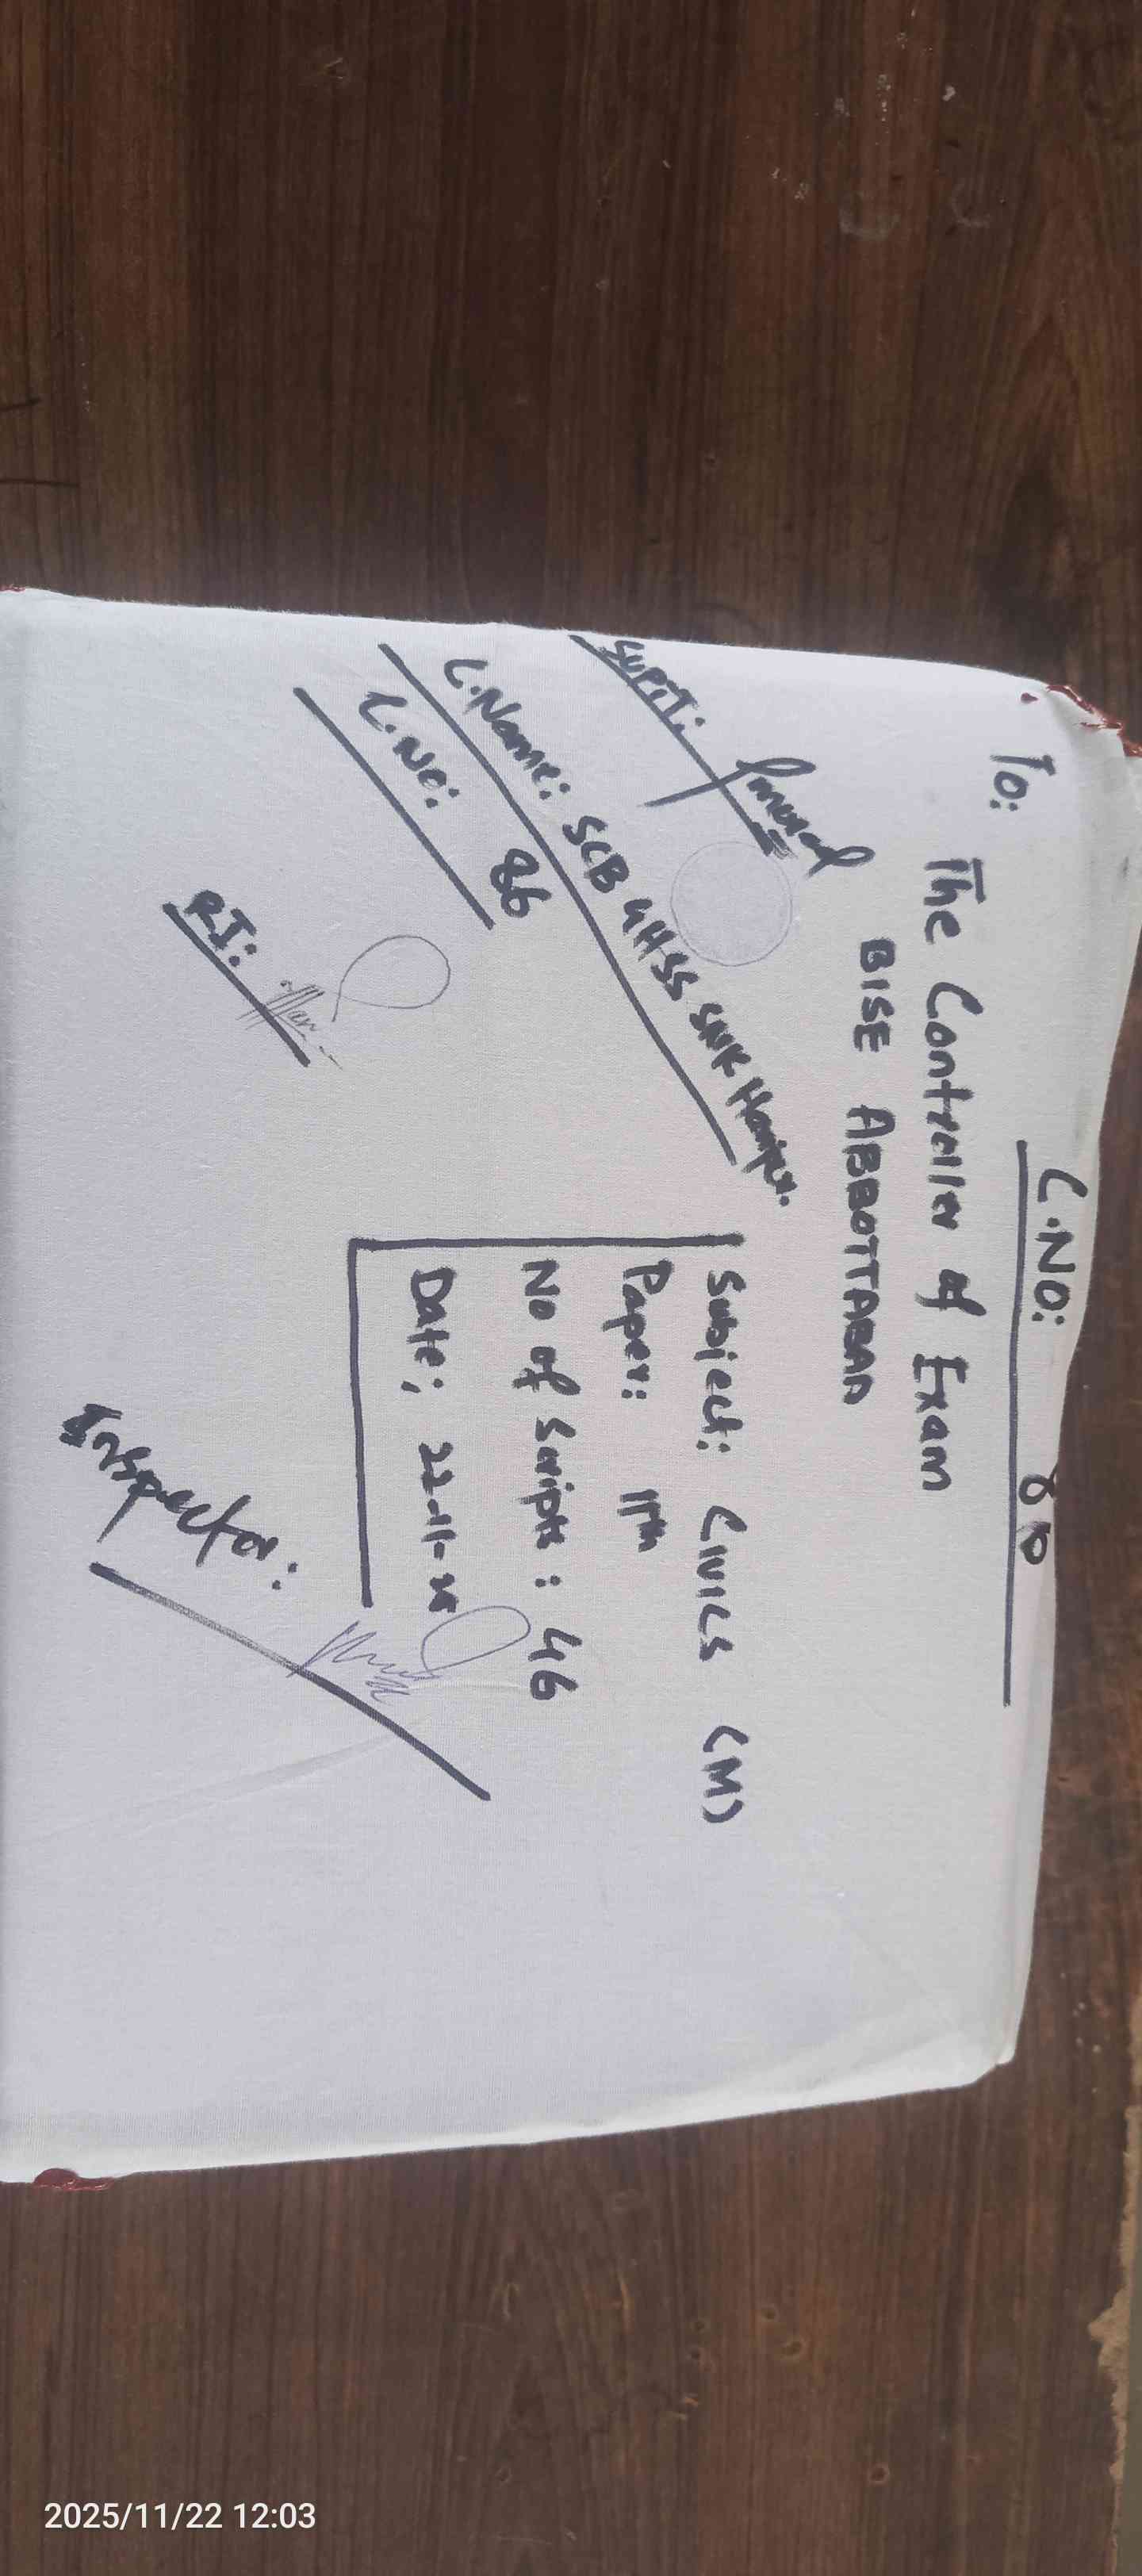 C.NO: 86
To:
The Controller of Exam
BISE ABBOTTABAD
Subject: CIVICS (M)
Paper: 11th
No of Scripts : 46
Date; 22-11-25
SUPTT:
C.Name: SCB GHSS SNK Haripur.
C.No: 86
RI:
Inspector:
2025/11/22 12:03